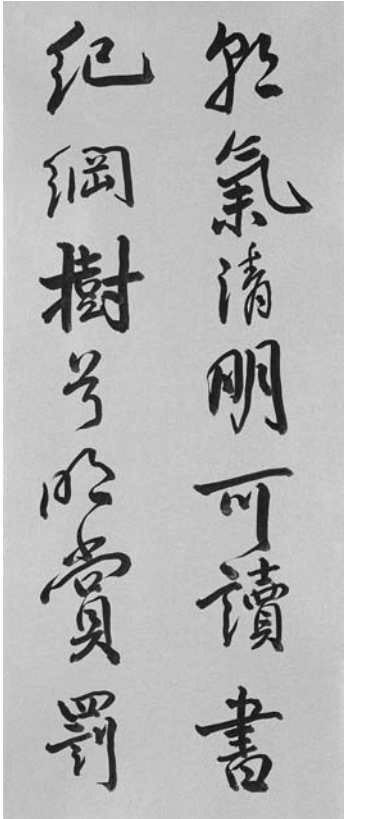 朝氣清明可讀書
紀綱樹兮明賞罰